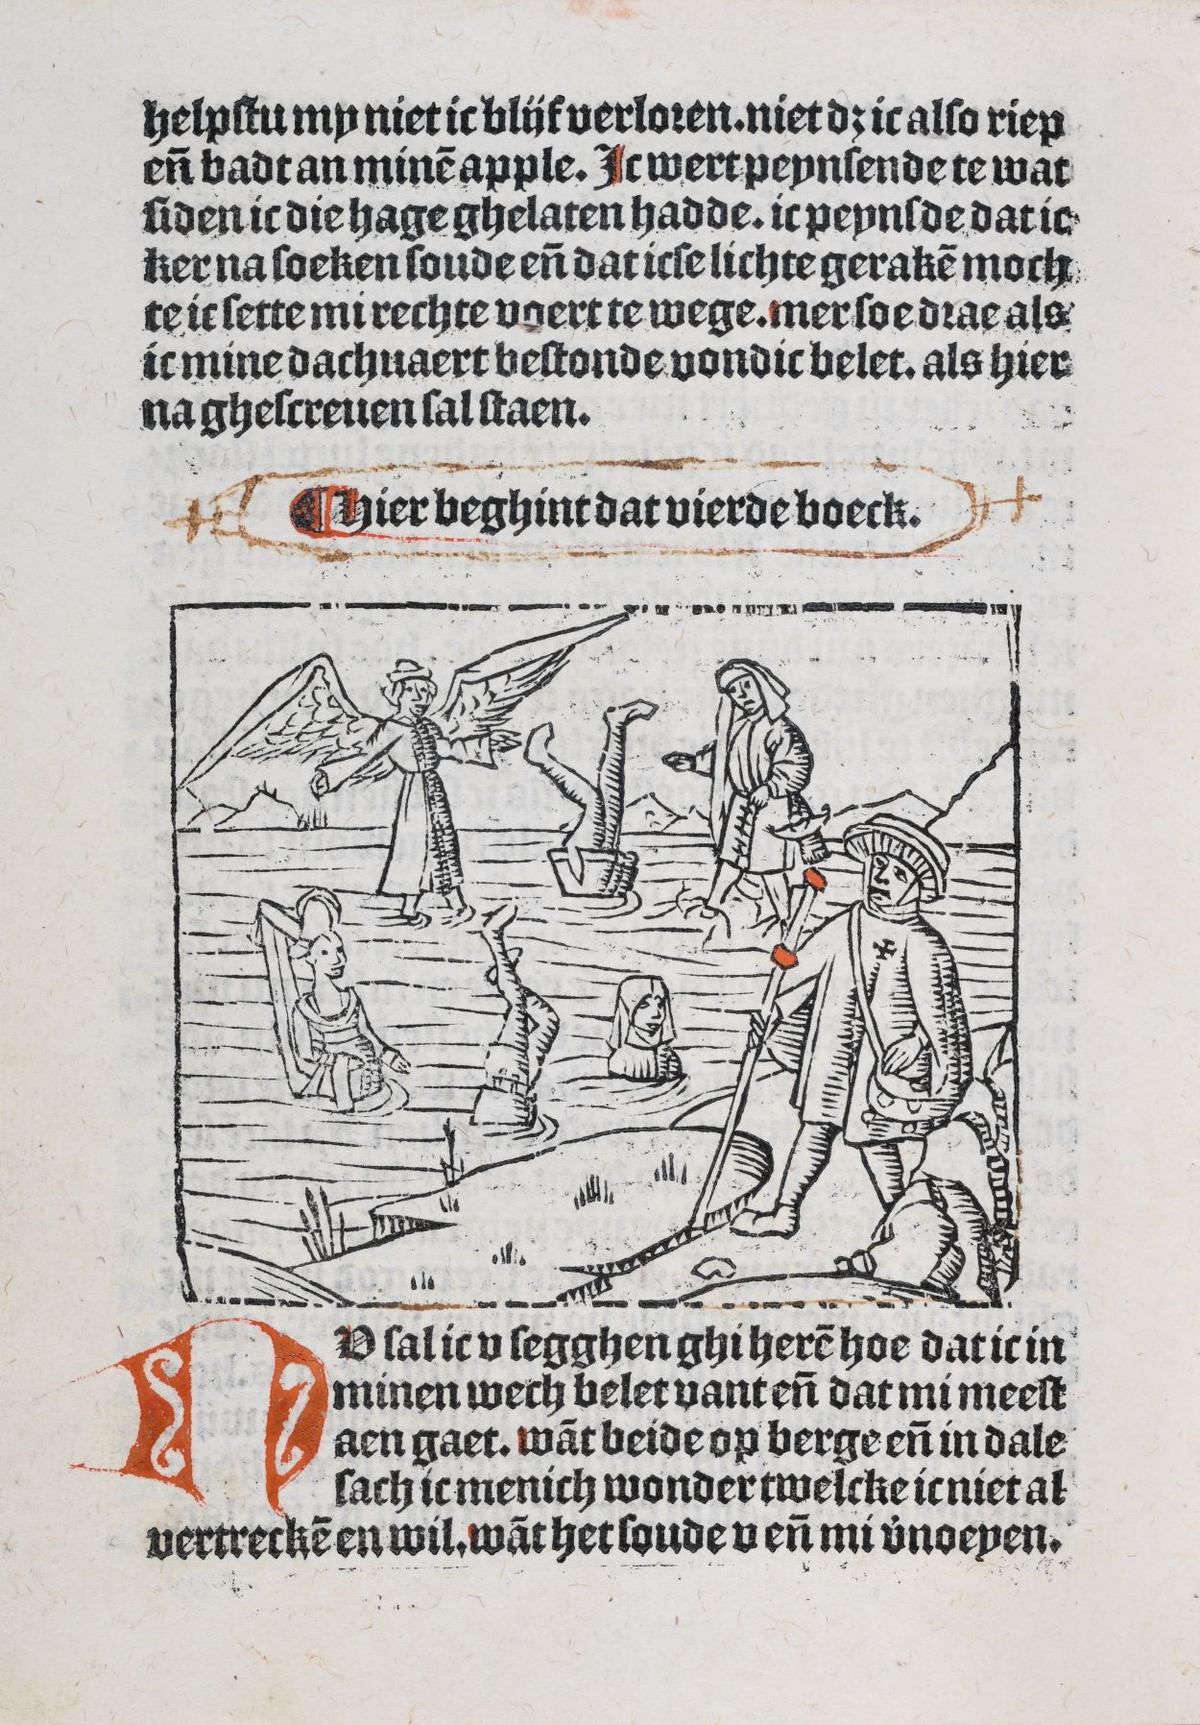 helpſtu my niet ic blijf verloꝛen. niet dꝫ ic alſo riep
en̄ badt an minē apple. Ic wert peynſende te wat
ſiden ic die hage ghelaten hadde. ic peynſde dat ic
ker na ſoeken ſoude en̄ dat icſe lichte gerakē moch
te ic ſette mi rechte voert te wege. mer ſoe dꝛae als
ic mine dachuaert beſtonde vondic belet. als hier
na gheſcreuen ſal ſtaen.
¶ hier beghint dat vierde boeck.
NV ſal ic v ſegghen ghi herē hoe dat ic in
minen wech belet vant en̄ dat mi meeſt
aen gaet. wāt beide op berge en̄ in dale
ſach ic menich wonder twelcke ic niet al
vertreckē en wil. wāt het ſoude v en̄ mi v̄noeyen.